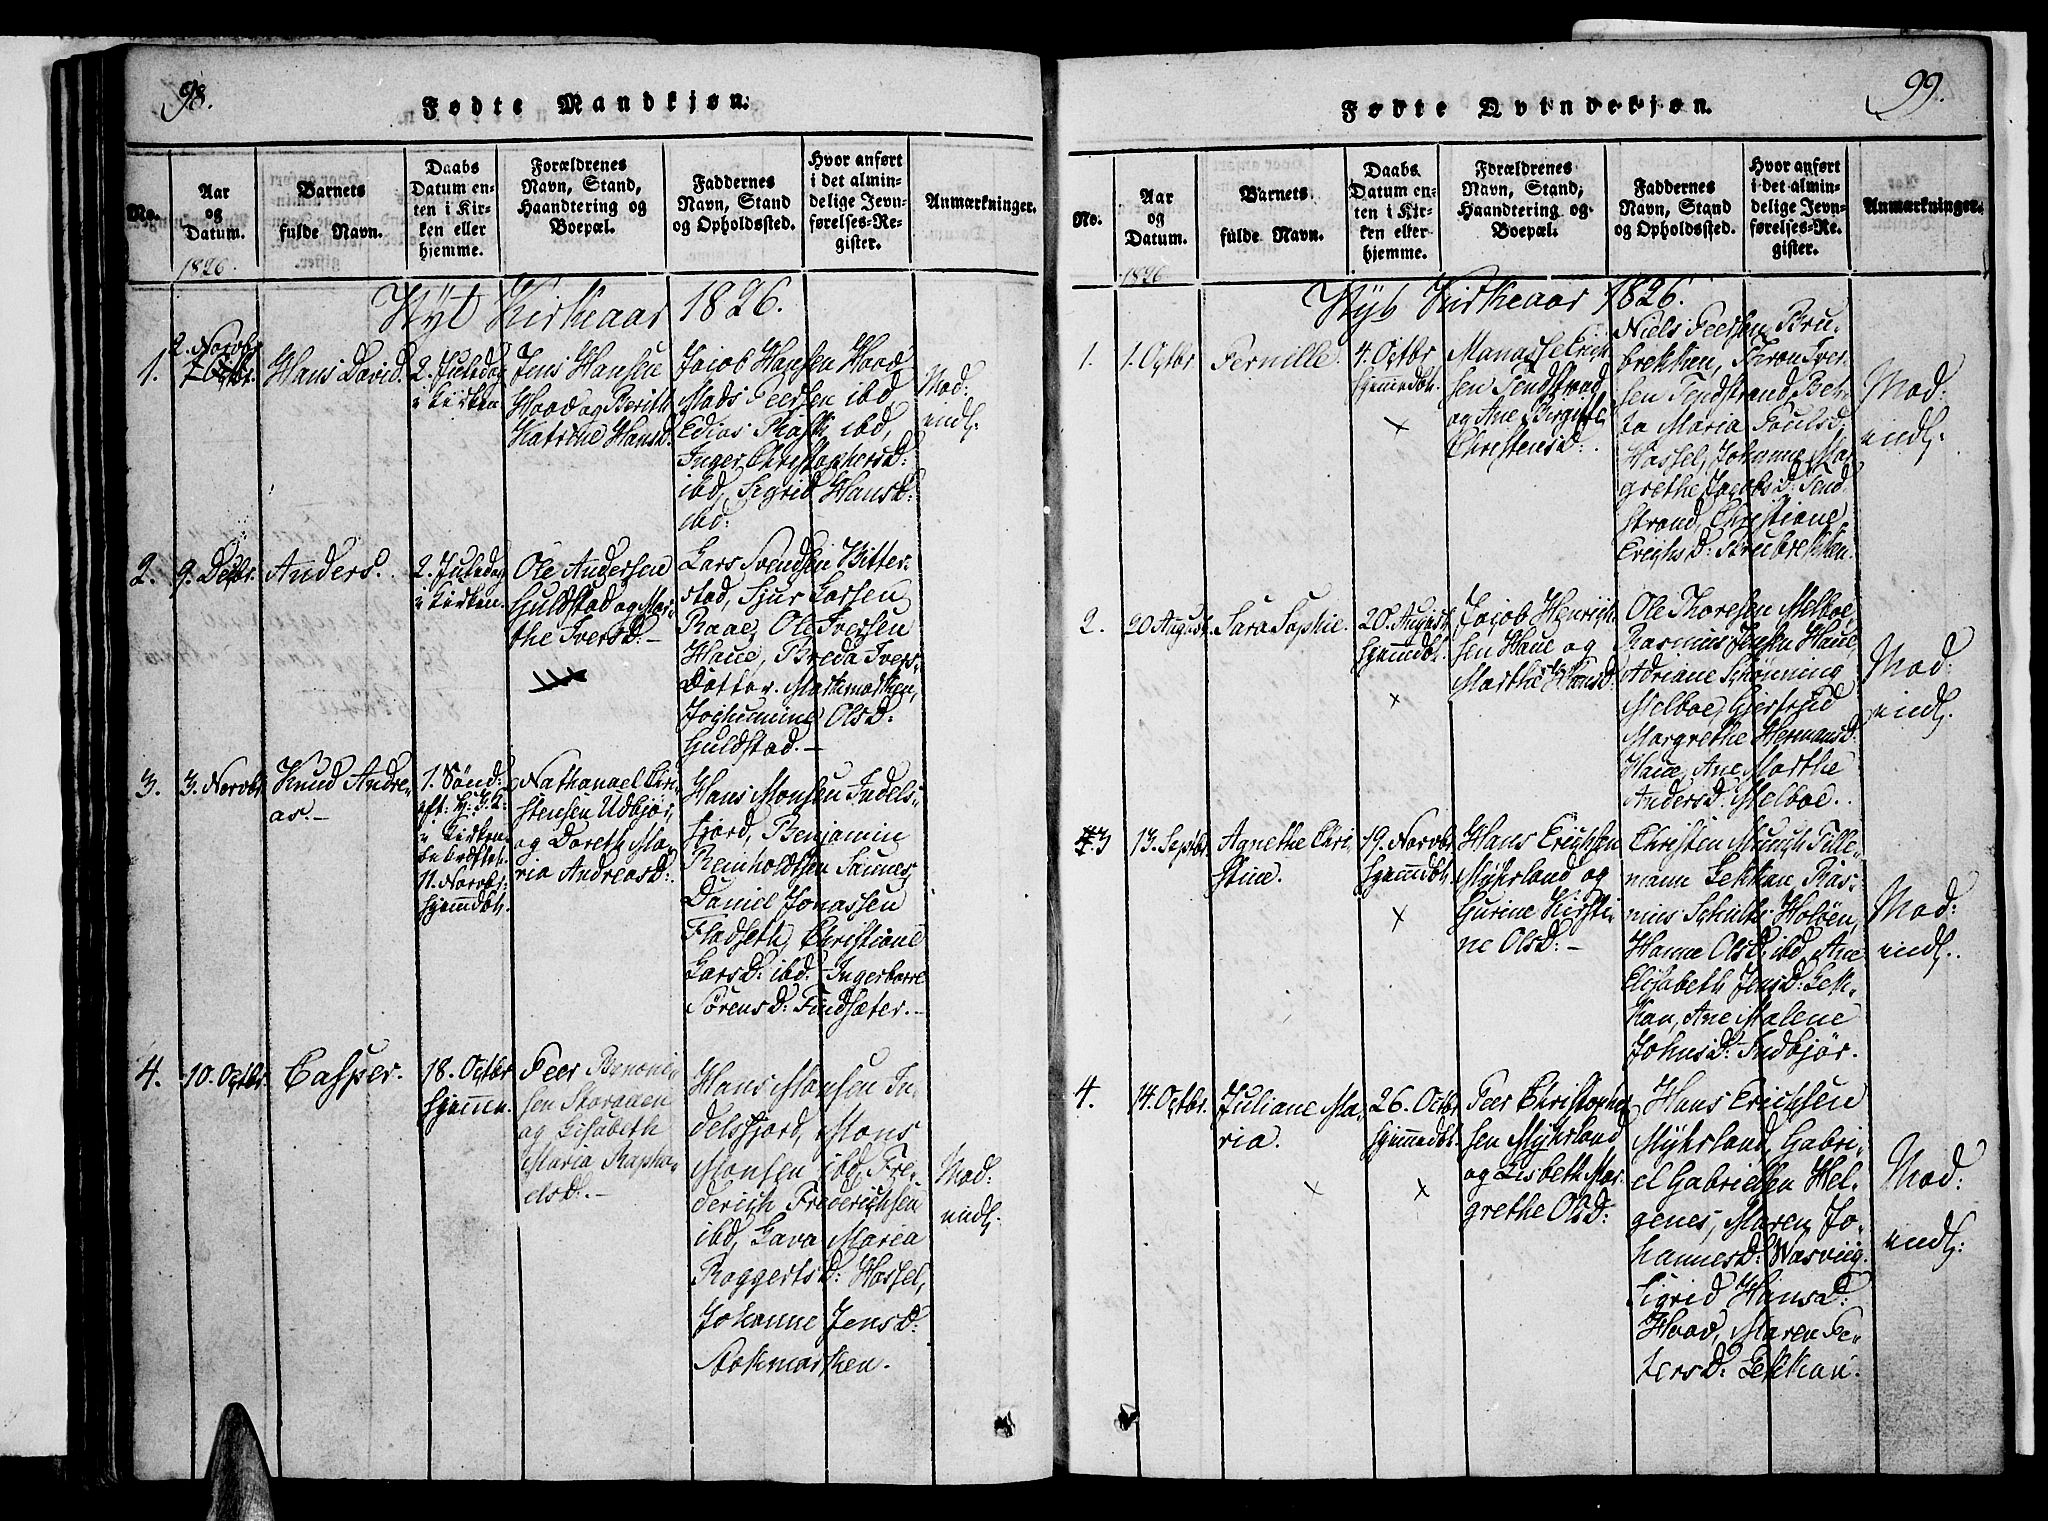 98.
Fødte Mandkjøn.
No.
Aar
og
Datum.
1826.
Barnets
fulde Navn.
Daabs
Datum en-
ten i Kir-
ken eller
hjemme.
Forældrenes
Navn, Stand,
Haandtering og
Boepæl.
Faddernes
Navn, Stand
og Opholdssted.
Hvor anført
i det almin-
delige Jevn-
førelses-Re-
gister.
Anmærkninger.
Nyt Kirkeaar 1826.
1.
2. Novbr
Hans David.
2. Juledag
i Kirken
Jens Hansen
Haad og Berith
Katrine Hansd.
Jacob Hansen Haad
Mads Peersen ibd
Edias Rask ibd,
Inger Christophersd:
ibd, Sigrid Hansd:
ibd:
Mod:
indl.
2.
9. Decbr.
Anders.
2. Juledag
i Kirken.
Ole Andersen
Guldstad og Mar-
the Iversd: –
Lars Svendsen Bitter-
stad, Sjur Larsen
Raae, Ole Iversen
Haue, Breda Ivers-
Datter. Markmarken,
Jochumine Olsd:
Guldstad. –
3.
3. Novbr.
Knud Andre-
as. –
1. Sønd:
eft: H: 3 K:
i Kirken
11. Novbr:
hjemdbt.
Nathanael Chri-
stensen Udbjør,
og Doreth Ma-
ria Andreasd:
Hans Monsen Indels-
fjord, Benjamin
Reinholdtsen Sannes
Daniel Jonassen
Fladseth, Christiane
Larsd: ibd. Ingerborre
Sørensd: Findsæter. –
4.
10. Octbr.
Casper.
18. Octbr
hjemmen.
Peer Benoni-
sen Storaaen
og Lisabeth
Maria Rapha-
elsd: –
Hans Monsen In-
delsfjord, Mons
Monsen ibd, Fre-
derich Frederichsen
ibd, Lava Maria
Roggertsd: Hassel,
Johanne Jensd:
Stokmarken.
Mod:
indl.
99.
Fødte Qvindekjøn.
No.
Aar
og
Datum.
1826
Barnets
fulde Navn.
Daabs
Datum en-
ten i Kir-
ken eller
hjemme.
Forældrenes
Navn, Stand,
Haandtering og
Boepæl.
Faddernes
Navn, Stand
og Opholdssted.
Hvor anført
i det almin-
delige Jevn-
førelses-Re-
gister.
Anmærkninger.
Nyt Kirkeaar 1826.
1.
1. Octbr
Pernille.
4. Octbr
hjemedbt.
Manasse Erich-
sen Sendstrad
og Ane Birgitte
Christensd:
Niels Peersen Bru-
brekken, Aron Iver-
sen Sendstrand, Ber-
ta Maria Poulsd:
Hassel, Johanne Mar-
grethe Jacobsd: Send-
strand, Christiane
Erichsd: Brubrekken.
Mod:
indl.
2.
20 August.
Sara Sophie.
28. August.
hjemdbt.
Jacob Henrich-
sen Haue og
Marthe Hansd:
Ole Thoresen Melboe,
Rasmus Jensen Haue,
Adriane Schønning
Melboe, Giertrud
Margrethe Hermansd:
Haue, Ane Marthe
Andersd: Melboe.
Mod:
indl.
3
13. Septbr.
Agnethe Chri-
stine.
19. Novbr.
hjemdbt.
Hans Erichsen
Myhrland og
Gurine Kirsti-
ne Olsd: –
Christen Munch Tille-
mann Lekkan, Ras-
mus Schulth Holøen,
Hanne Olsd: ibd, Ane
Elisabeth Jensd: Lek-
kan, Ane Malene
Johnsd: Indbjør.
Mod:
indl.
4.
14. Octbr.
Juliane Ma-
ria.
26. Octbr.
hjemmedbt.
Peer Christopher-
sen Myhrland
og Lisbeth Mar-
grethe Olsd:
Hans Erichsen
Myhrland, Gabri-
el Gabrielsen Hel-
genes, Maren Jo-
hannesd: Wasviig.
Sigrid Hansd:
Haad, Maren Pe-
tersd: Lekkan.
Mod:
indl: